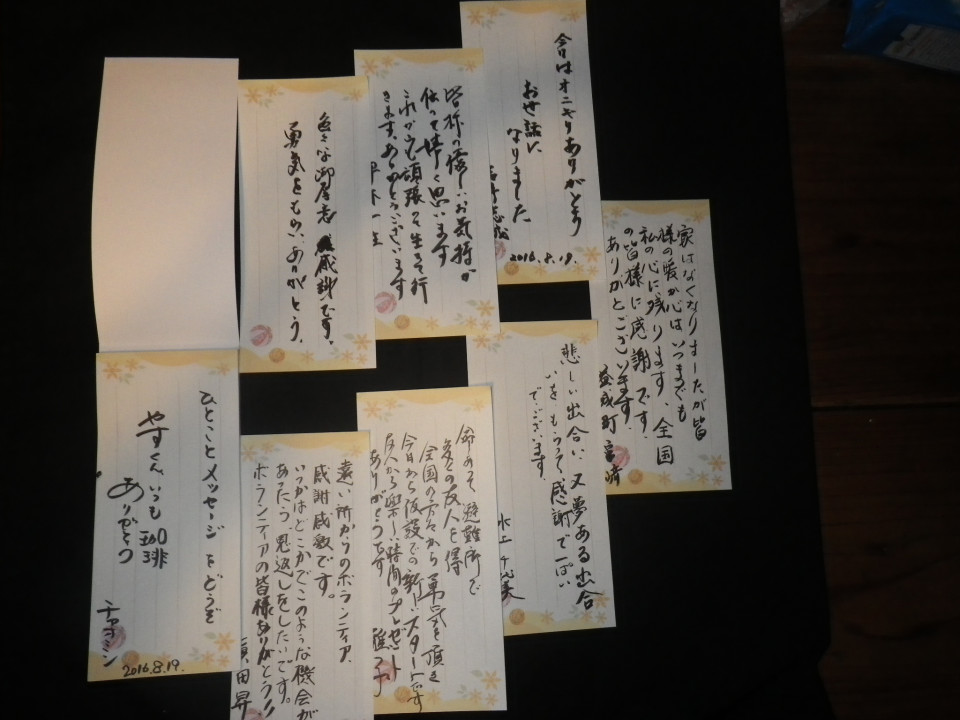 今日はオニギリありがとう
お世話に
なりました
2016.8.19.
皆様の優しいお気持が
伝って嬉しく思います
これからも頑張って生きて行
きます。ありがとうございます
色々な御厚志
感謝です。
勇気をもらい、ありがとう。
家はなくなりましたが皆
様の暖か心はいつまでも
私の心に残ります。全国
の皆様に感謝です。
ありがとございます。
益城町 宮崎
悲しい出合い、又夢ある出合
いをもらって感謝で一ぱい
でございます。
水上千代美
命あって避難所で
多くの友人を得
全国の方々から勇気を頂き
今日から仮設での新しいスタートです
友人から楽しい時間のプレゼント
ありがとうです
遠い所からのボランティア、
感謝感激です。
いつかはどこかでこのような機会が
あったら、恩返しをしたいです。
ボランティアの皆様ありがとう!!
田昇
ひとことメッセージをどうぞ
やすくん、いつも
珈琲
ありがとう
2016.8.19.